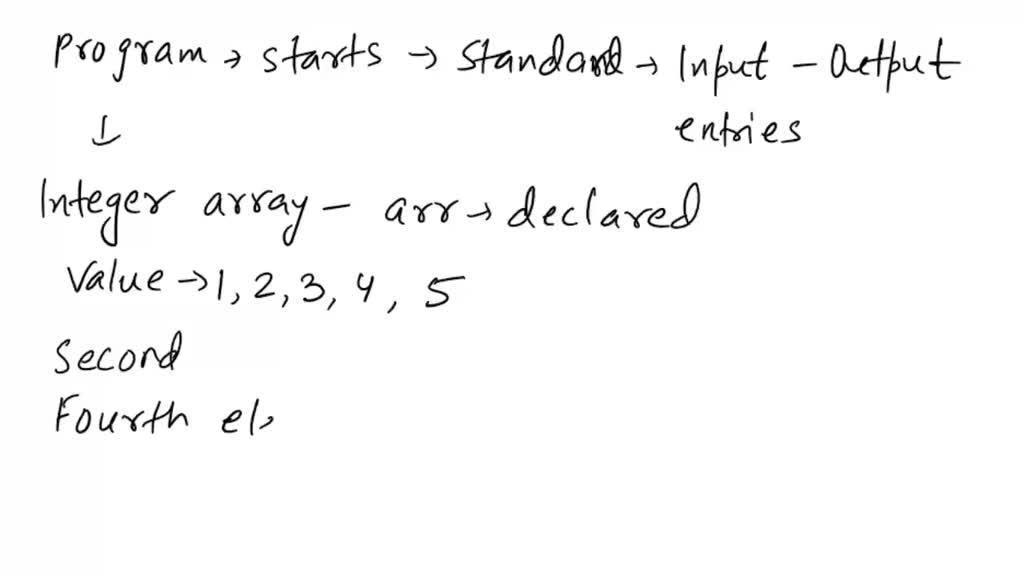 Program → starts → Standard → Input - Output
↓ entries
Integer array - arr → declared
Value → 1, 2, 3, 4, 5
Second
Fourth el.